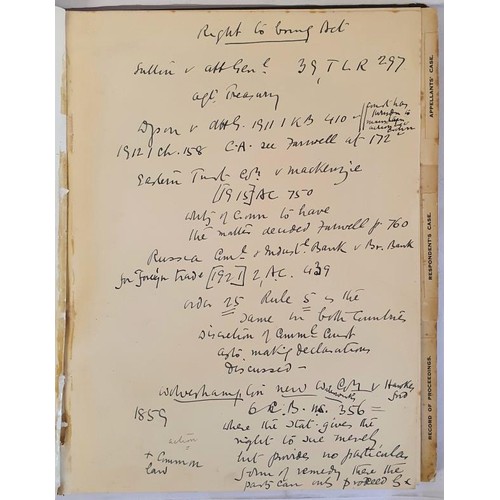 Right to bring Act
Sutton v Att Genl 39 TLR 297
agst Treasury
Dyson v Att G. 1911 1 KB 410
Court has
1912 1 Ch. 158 C.A. see Farwell at 172
Eastern Trust Coy v Mackenzie
[1915] AC 750
duty of Crown to have
the matter decided Farwell p 760
Russian Coml & Industl Bank v Br. Bank
for Foreign Trade [1921] 2, A.C. 439
order 25 Rule 5 is the
same in both Countries
discretion of Comml Court
as to making declarations
discussed —
Wolverhampton new W Coy v Hawkesford
1859 6 C.B. ns. 356 =
where the stat. gives the
right to sue merely
action
but provides no particular
+ Common
law
form of remedy there the
part can only proceed by
APPELLANTS' CASE.
RESPONDENT'S CASE.
RECORD OF PROCEEDINGS.